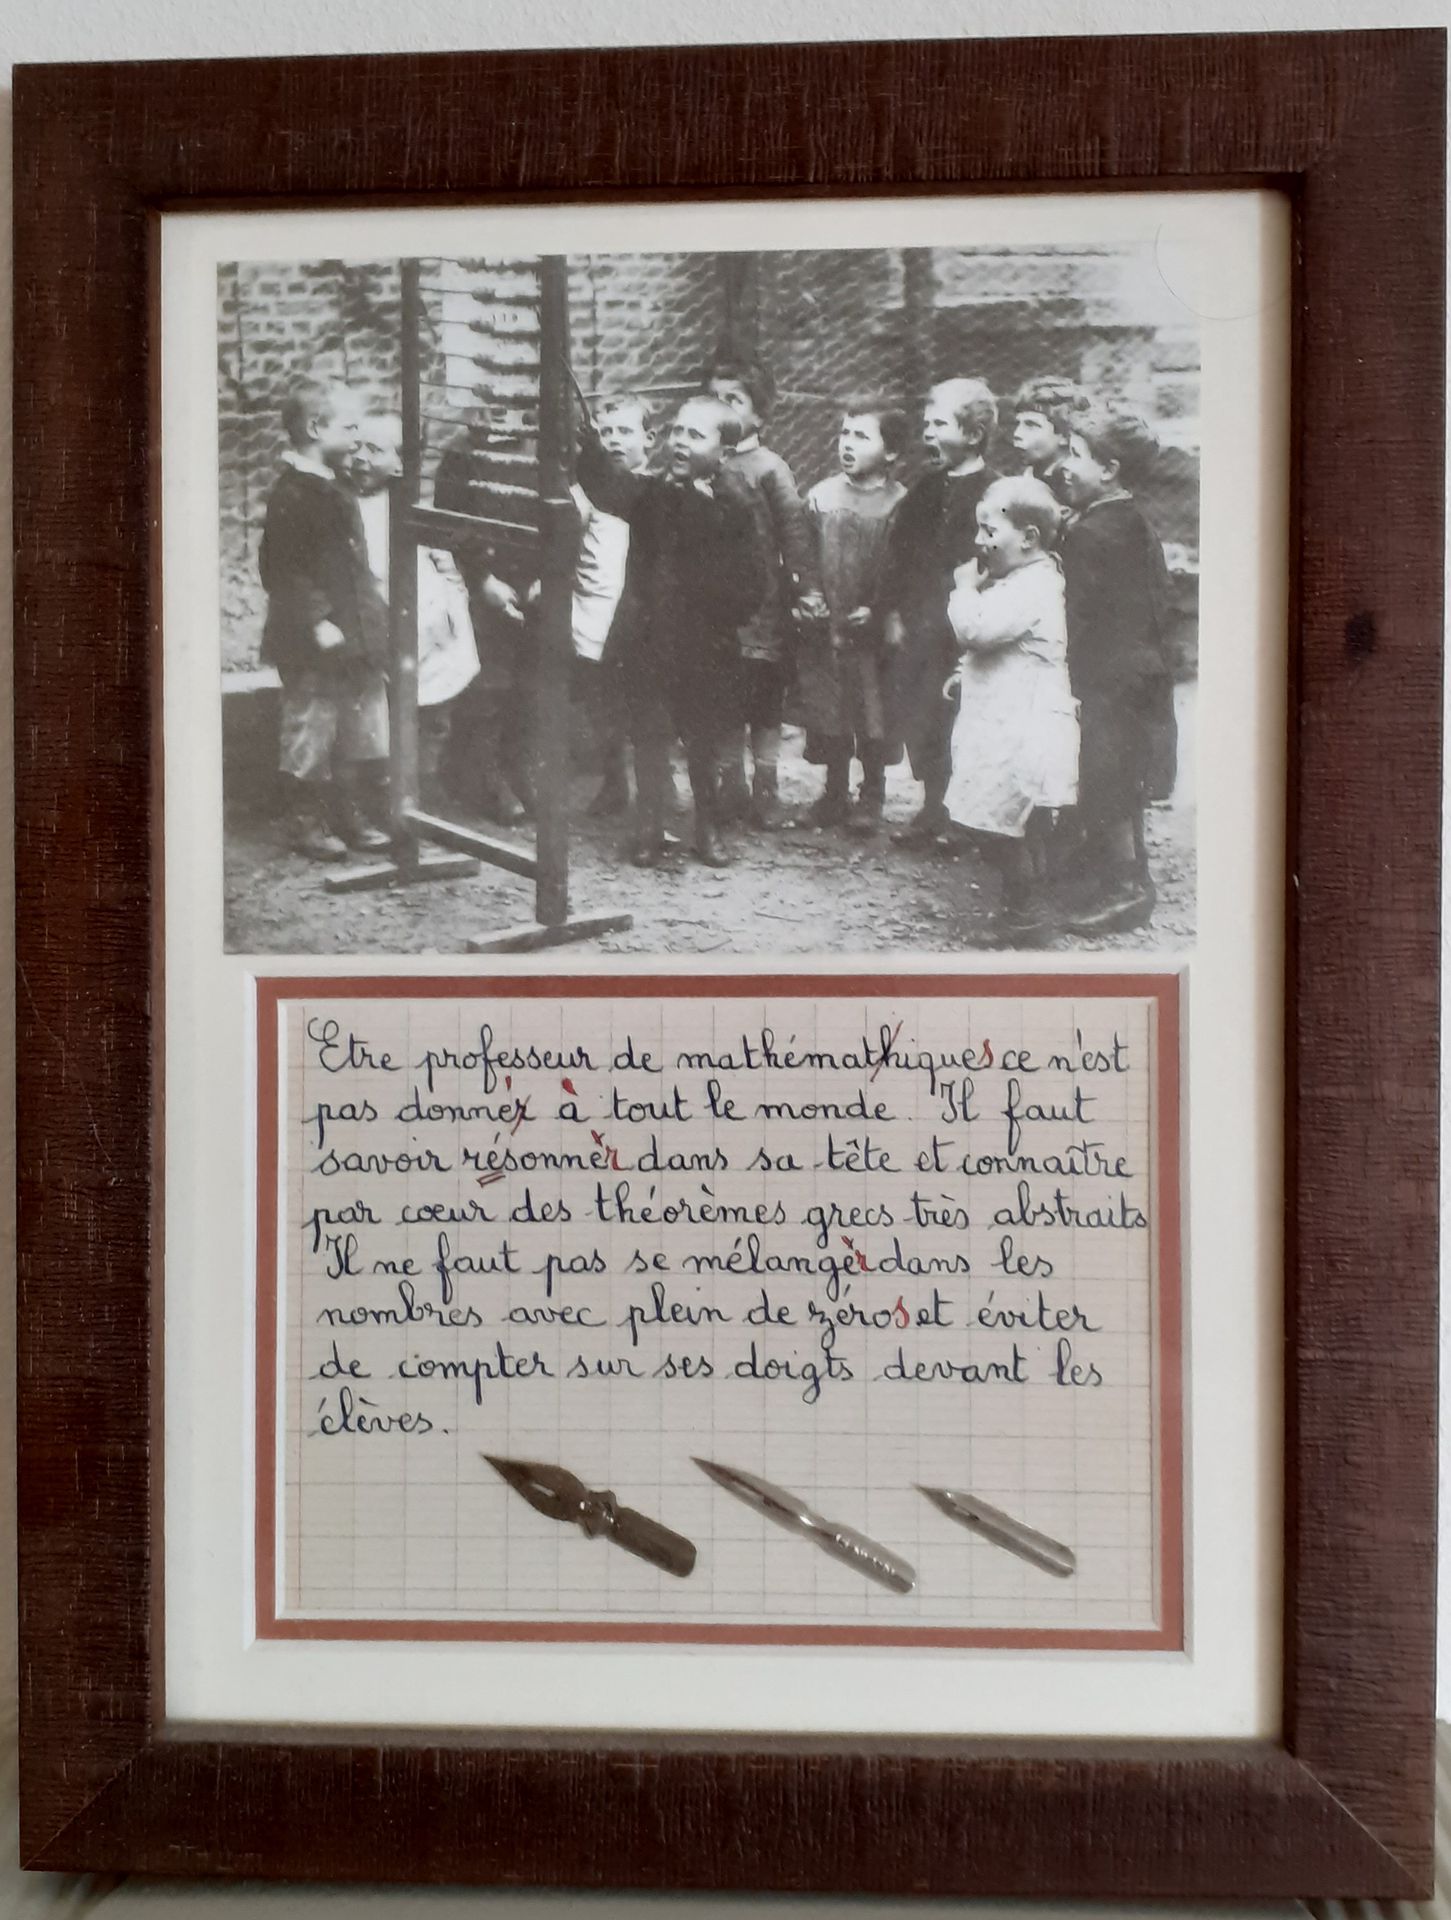 Etre professeur de mathémathiques ce n'est
pas donnér à tout le monde. Il faut
savoir résonnèr dans sa tête et connaître
par cœur des théorèmes grecs très abstraits
Il ne faut pas se mélangèr dans les
nombres avec plein de zéros et éviter
de compter sur ses doigts devant les
élèves.